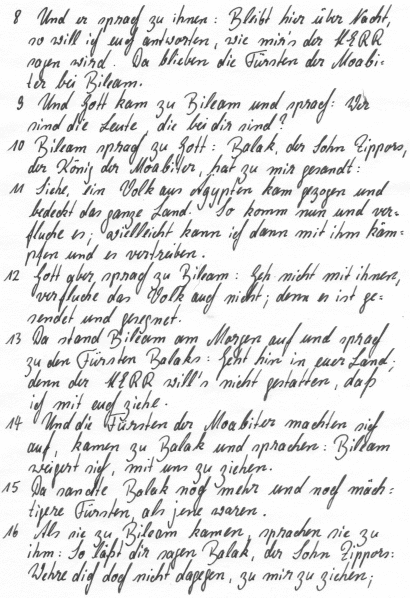 8 Und er sprach zu ihnen: Bleibt hier über Nacht,
so will ich euch antworten, wie mir's der HERR
sagen wird. Da blieben die Fürsten der Moabi-
ter bei Bileam.
9 Und Gott kam zu Bileam und sprach: Wer
sind die Leute, die bei dir sind?
10 Bileam sprach zu Gott: Balak, der Sohn Zippors,
der König der Moabiter, hat zu mir gesandt:
11 Siehe, ein Volk aus Ägypten kam gezogen und
bedeckt das ganze Land. So komm nun und ver-
fluche es; vielleicht kann ich dann mit ihm käm-
pfen und es vertreiben.
12 Gott aber sprach zu Bileam: Geh nicht mit ihnen,
verfluche das Volk auch nicht; denn es ist ge-
sendet und gesegnet.
13 Da stand Bileam am Morgen auf und sprach
zu den Fürsten Balaks: Geht hin in euer Land;
denn der HERR will's nicht gestatten, daß
ich mit euch ziehe.
14 Und die Fürsten der Moabiter machten sich
auf, kamen zu Balak und sprachen: Bileam
weigert sich, mit uns zu ziehen.
15 Da sandte Balak noch mehr und noch mäch-
tigere Fürsten, als jene waren.
16 Als sie zu Bileam kamen, sprachen sie zu
ihm: So läßt dir sagen Balak, der Sohn Zippors:
Wehre dich doch nicht dagegen, zu mir zu ziehen;